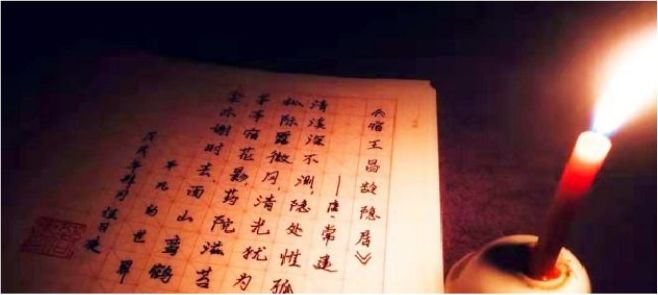 《宿王昌龄隐居》
——唐·常建
清溪深不测,隐处惟孤
松际露微月,清光犹为
茅亭宿花影,药院滋苔
余亦谢时去,西山鸾鹤
不凡的世界